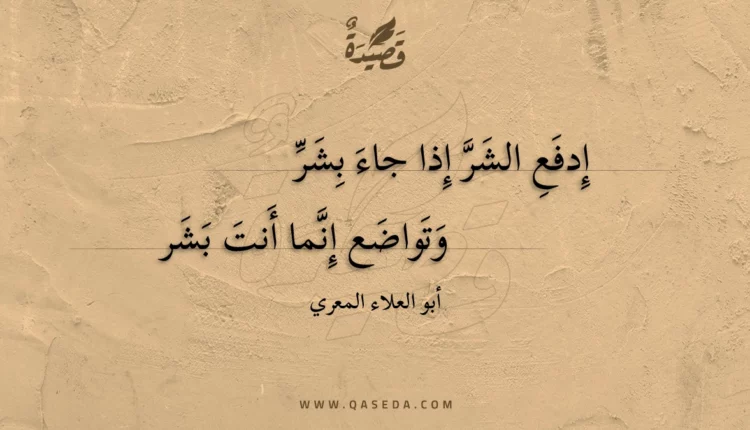 قَصِيدَةٌ
إِدفَعِ الشَرَّ إِذا جاءَ بِشَرٍّ
وَتَواضَع إِنَّما أَنتَ بَشَر
أبو العلاء المعري
WWW.QASEDA.COM